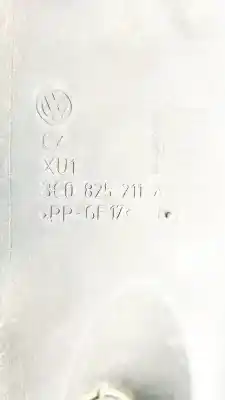 CZ
XU1
3C0 825 211 A
>PP-GF17<